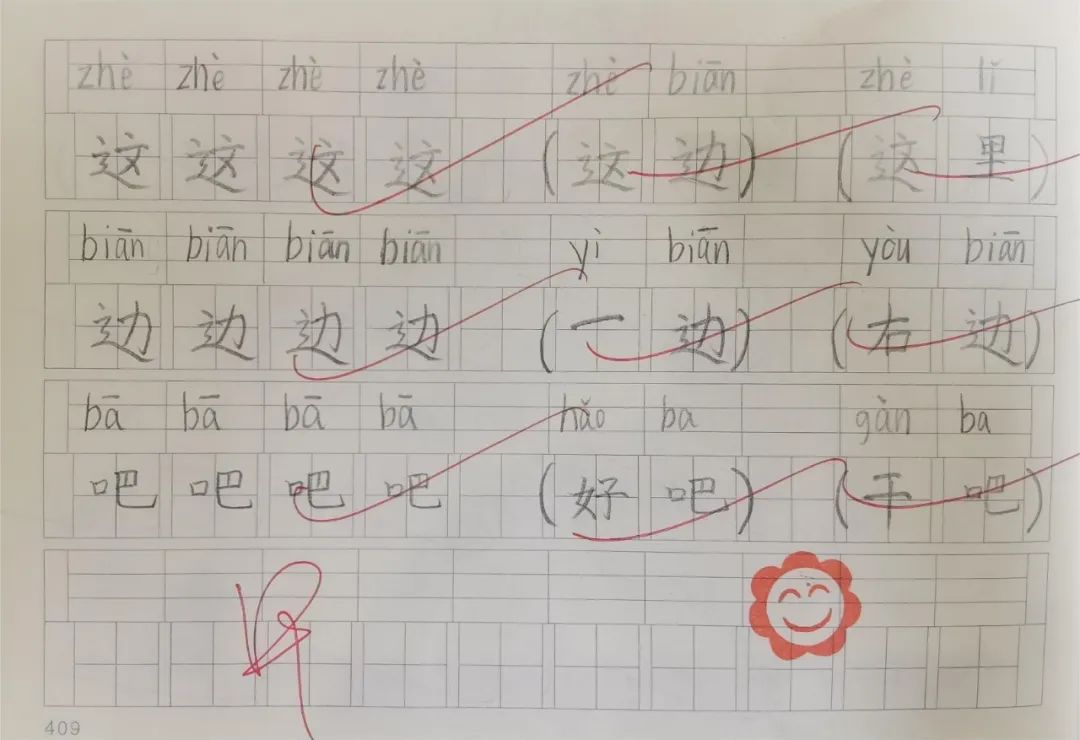 zhè zhè zhè zhè zhè biān zhè lǐ
这 这 这 这 (这 边) (这 里)
biān biān biān biān yì biān yòu biān
边 边 边 边 (一 边) (右 边)
bā bā bā bā hǎo ba gàn ba
吧 吧 吧 吧 (好 吧) (干 吧)
409